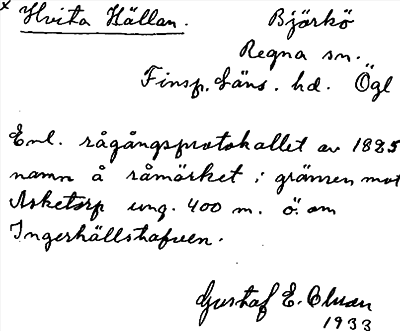 x Hvita Hällan. Björkö
Regna sn.
Finsp. läns. hd. Ögl
Enl. rågångsprotokollet av 1825
namn å råmärket i gränsen mot
Asketorp ung. 400 m. ö. om
Ingerhällstafven.
Gustaf E.
1933